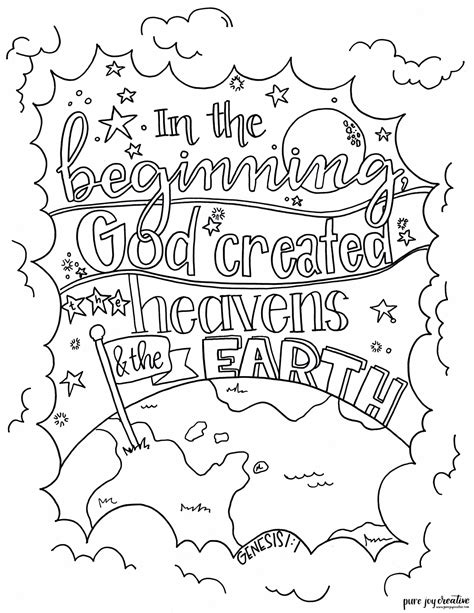 In the
beginning,
God created
the heavens
& the EARTH
GENESIS 1:1
pure joy creative